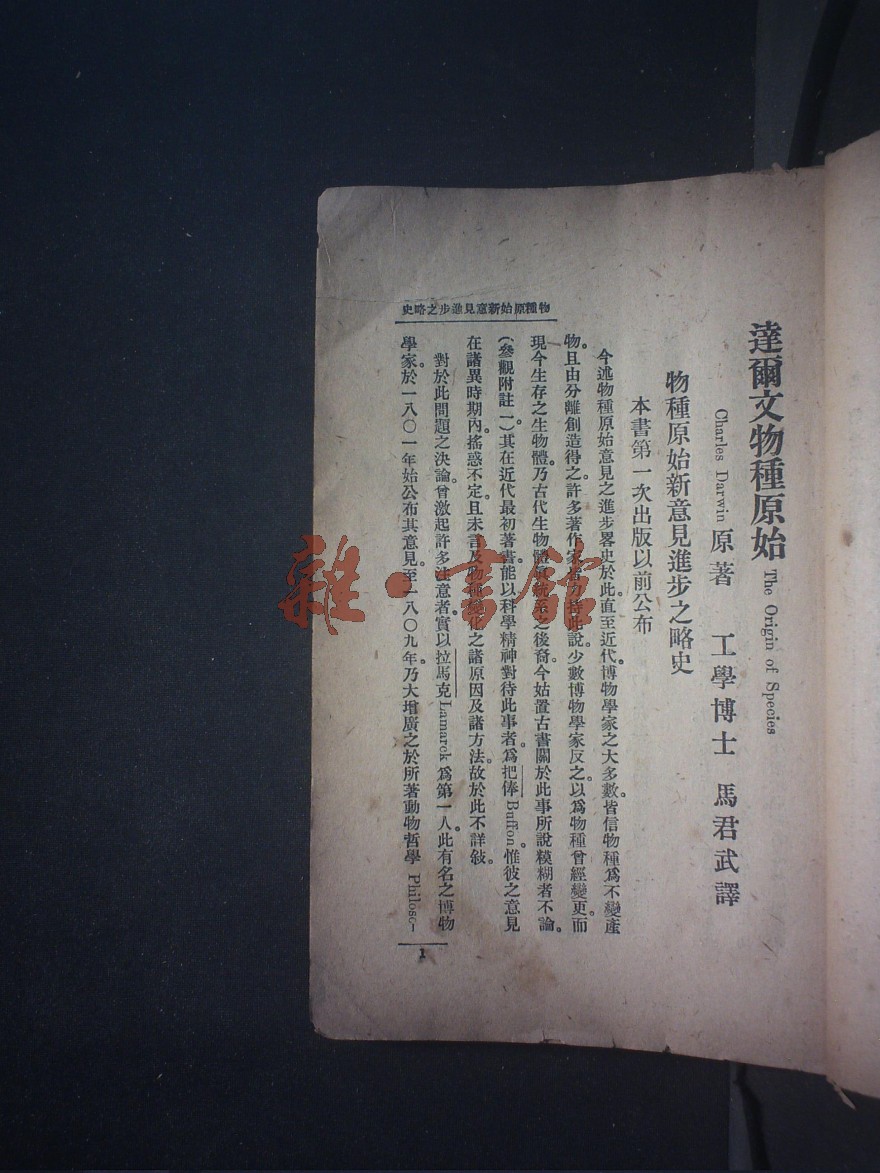 達爾文物種原始 The Origin of Species
Charles Darwin 原著 工學博士 馬君武譯
物種原始新意見進步之略史
本書第一次出版以前公布
今述物種原始意見之進步畧史於此。直至近代。博物學家之大多數。皆信物種爲不變產
物。且由分離創造得之。許多著作家者力持此說。少數博物學家反之。以爲物種曾經變更。而
現今生存之生物體。乃古代生物體眞統系之後裔。今姑置古書關於此事所說糢糊者不論。
(參觀附註一)。其在近代最初著書能以科學精神對待此事者。爲把俸 Buffon。惟彼之意見
在諸異時期內。搖惑不定。且未言及物種變化之諸原因及諸方法。故於此不詳敍。
對於此問題之決論。曾激起許多注意者。實以拉馬克 Lamarck 爲第一人。此有名之博物
學家。於一八〇一年始公布其意見。至一八〇九年。乃大增廣之於所著動物哲學 Philoso-
物種原始新意見進步之略史
1
雜·書館